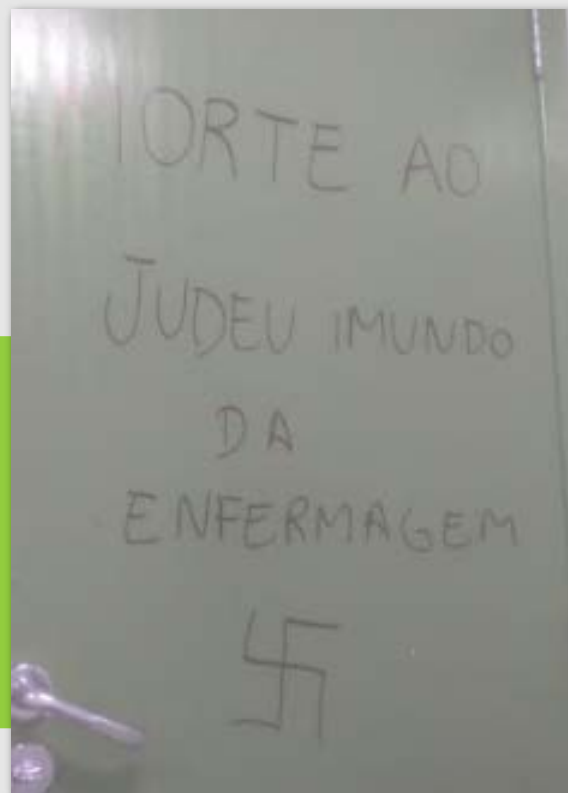 MORTE AO
JUDEU IMUNDO
DA
ENFERMAGEM